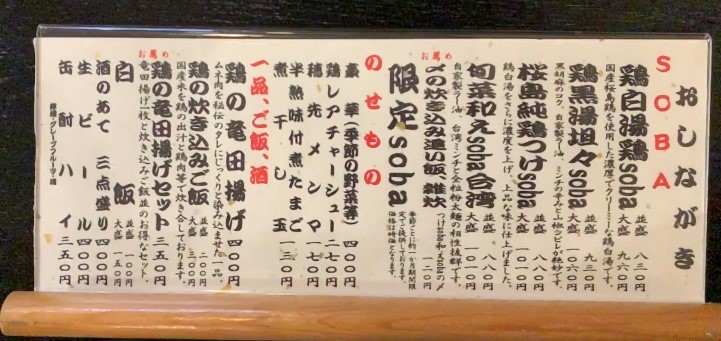 おしながき
SOBA
鶏白湯鶏soba 並盛 八三〇円
大盛 九六〇円
国産桜島鶏を使用した濃厚でクリーミーな鶏白湯です。
鶏黒湯坦々soba 並盛 九三〇円
大盛 一〇六〇円
黒胡麻のコク、自家製ラー油、ミンチの辛みと極つぶしが絶妙です。
桜島純鶏つけsoba 並盛 八八〇円
大盛 一〇一〇円
鶏白湯をさらに濃度を上げ、上品な味に仕上げました。
旬菜和えsoba台湾 並盛 八八〇円
大盛 一〇一〇円
自家製ラー油、台湾ミンチと全粒粉太麺の相性抜群です。
お薦め
〆の炊き込み追い飯、雑炊 一二〇円
つけsoba和えsobaの〆
限定soba
季節ごとに約一か月期間限
定でご提供しております。
価格は時価となります。
のせもの
豪華(季節の野菜等) 四〇〇円
鶏レアチャーシュー 二七〇円
穂先メンマ 一七〇円
半熟味付煮たまご 一三〇円
煮干し玉
一品、ご飯、酒
鶏の竜田揚げ 四〇〇円
ムネ肉を秘伝のタレにじっくりと染み込ませた一品。
鶏の炊き込みご飯 並盛 二〇〇円
大盛 三〇〇円
国産米を鶏の出汁と鶏肉等で炊き合しております。
お薦め
鶏の竜田揚げセット 三五〇円
竜田揚げ一枚と炊き込みご飯並のお得なセット。
白飯 並盛 一〇〇円
大盛 一五〇円
酒のあて 三点盛り 四〇〇円
生ビール 四〇〇円
缶酎ハイ 三五〇円
檸檬・グレープフルーツ・梅